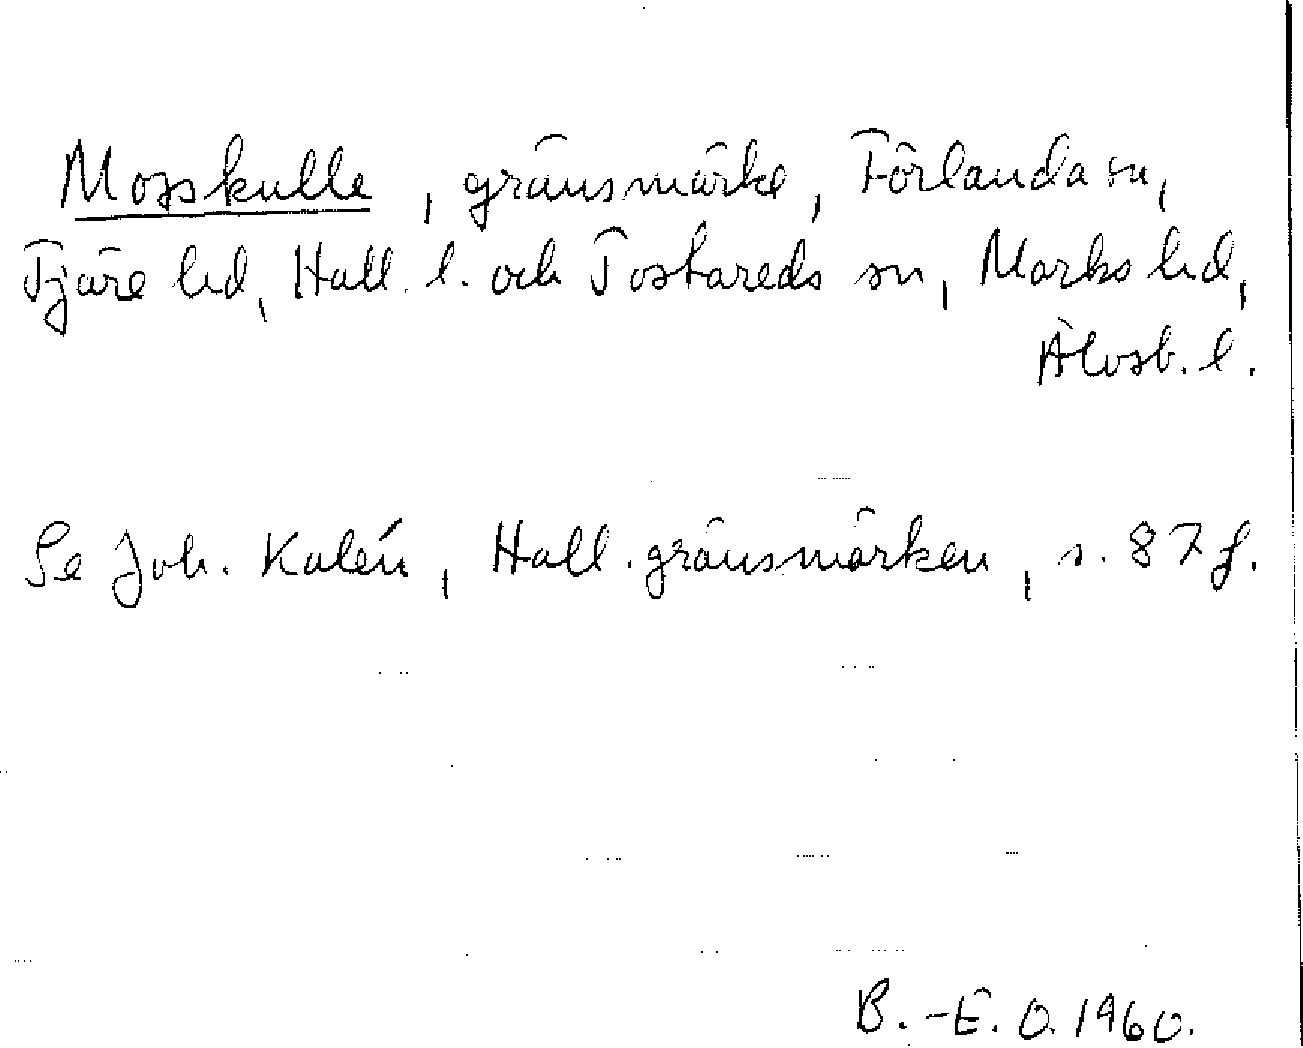 Mosskulle, gränsmärke, Förlanda sn,
Fjäre hd, Hall. l. och Tostareds sn, Marks hd,
Älvsb. l.
Se Joh. Kalén, Hall. gränsmärken, s. 87 f.
B.-E. O. 1960.